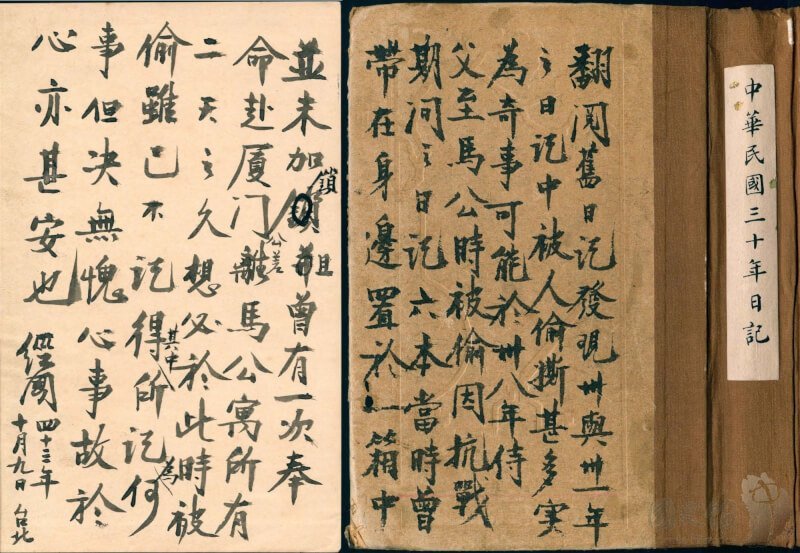 中華民國三十年日記
翻阅舊日记發現卅與卅一年
之日记中被人偷撕甚多實
為奇事可能於卅八年侍
父至馬公時被偷因抗戰
期间之日记六本當時曾
帶在身邊置於一箱中
並未加鎖且曾有一次奉
命赴厦门公差離馬公寓所有
二天之久想必於此時被
偷雖已不记得其中所记為何
事但决無愧心事故於
心亦甚安也
經國 四十三年
十月九日 台北